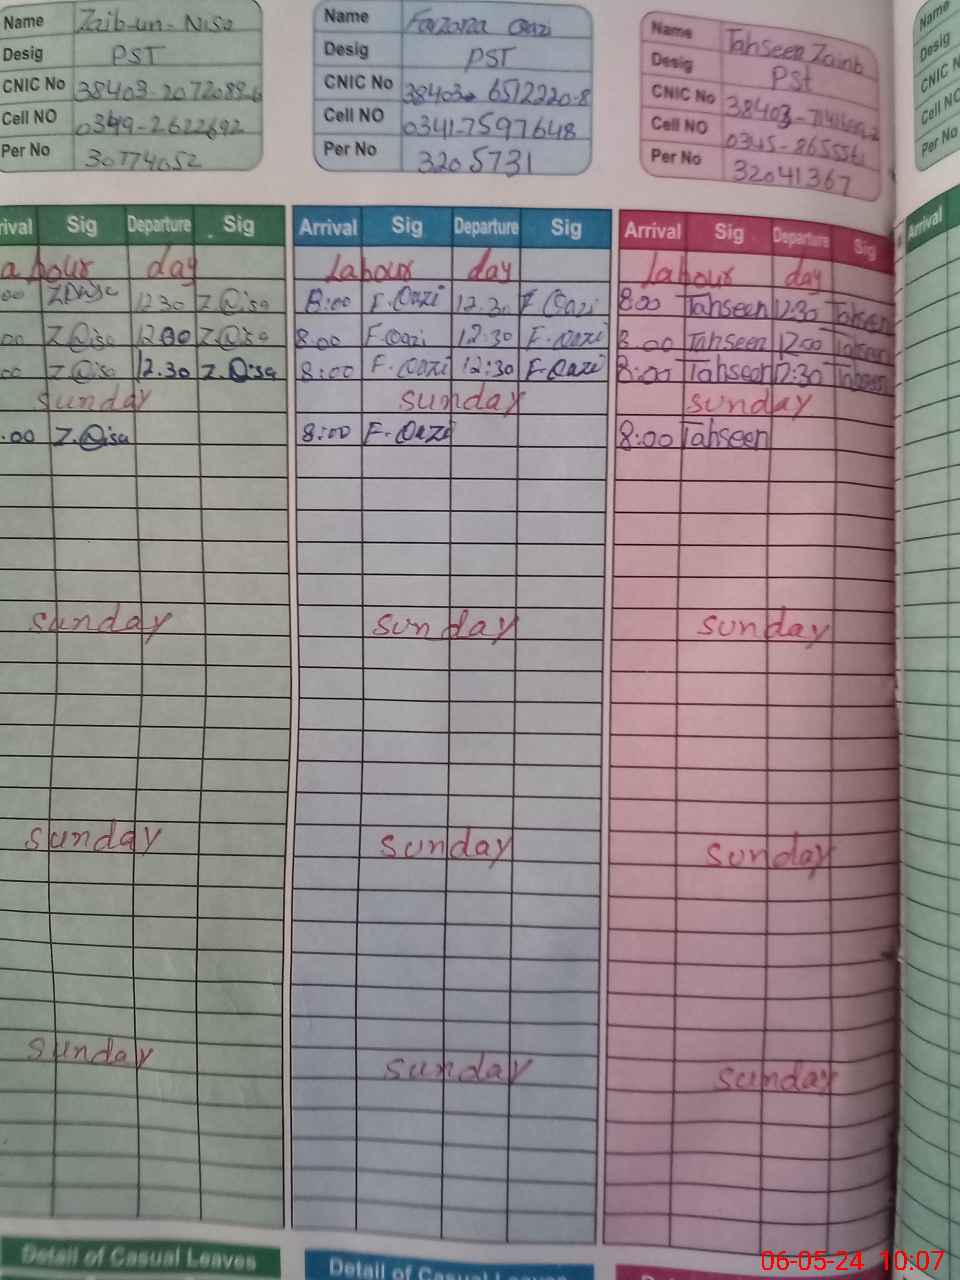 Name Zaib-un-Nisa
Desig PST
CNIC No
Cell NO 0349-2622692
Per No 30774052
Name Farzana Qazi
Desig PST
CNIC No 38403-6512220-8
Cell NO 0341-7597648
Per No 3205731
Name Tahseen Zainb
Desig PSt
CNIC No
Cell NO
Per No 32041367
Name
Desig
CNIC N
Cell NO
Per No
rival Sig Departure Sig
abour day
00 12 30 Z.Nisa
00 Z.Nisa Z.Nisa
00 Z.Nisa 12.30 Z.Nisa
sunday
.00 Z.Nisa
sunday
sunday
sunday
Detail of Casual Leaves
Arrival Sig Departure Sig
labour day
8:00 F.Qazi 12.30 F.Qazi
8.00 F.Qazi 12:30 F.Qazi
8:00 F.Qazi 12:30 F.Qazi
sunday
8:00 F.Qazi
sunday
sunday
sunday
Detail of Casual Leaves
Arrival Sig Departure Sig
labour day
8.00 Tahseen 12:30 Tahseen
8.00 Tahseen 12:00 Tahseen
8:00 Tahseen 12:30 Tahseen
sunday
8:00 Tahseen
sunday
sunday
sunday
Arrival
06-05-24 10:07